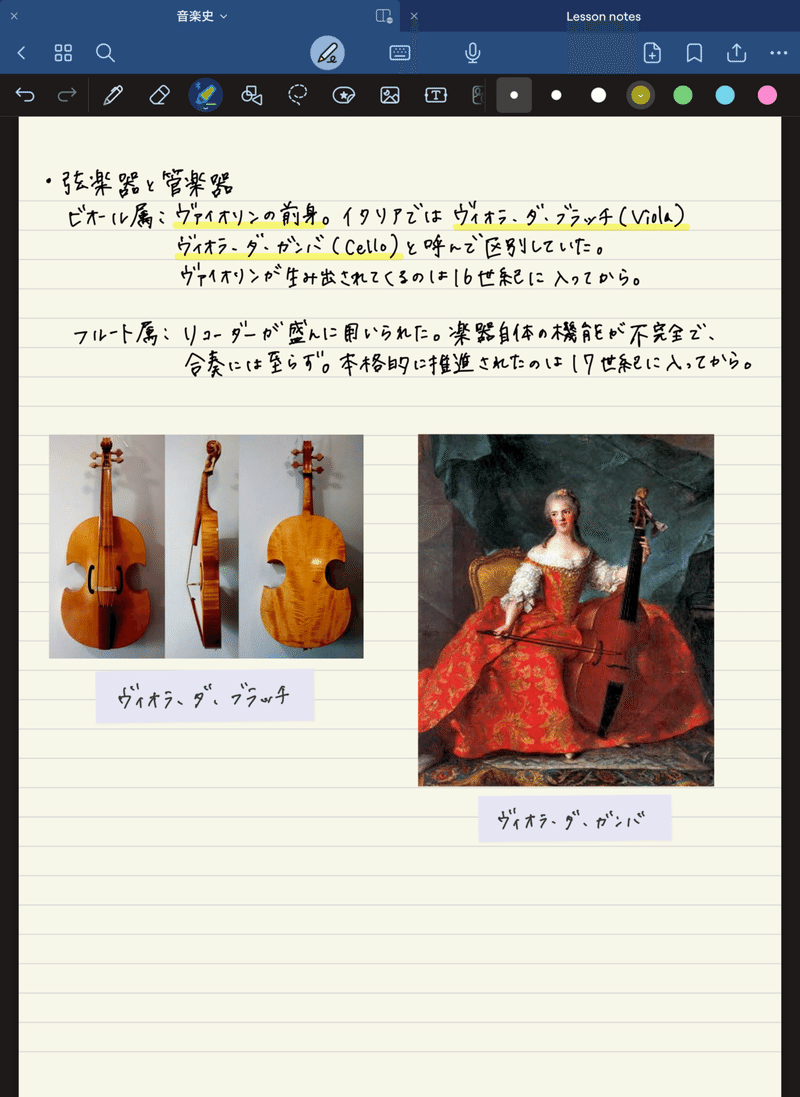 音楽史
Lesson notes
・弦楽器と管楽器
ビオール属：ヴァイオリンの前身。イタリアでは ヴィオラ、ダ、ブラッチ(Viola)
ヴィオラ、ダ、ガンバ(Cello)と呼んで区別していた。
ヴァイオリンが生み出されてくるのは16世紀に入ってから。
フルート属：リコーダーが盛んに用いられた。楽器自体の機能が不完全で、
合奏には至らず。本格的に推進されたのは17世紀に入ってから。
ヴィオラ、ダ、ブラッチ
ヴィオラ、ダ、ガンバ